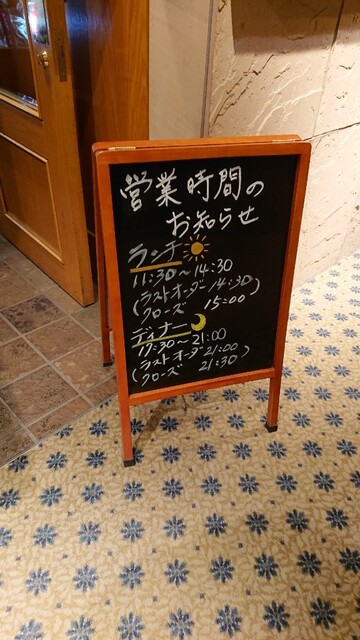 営業時間の
お知らせ
ランチ
11:30~14:30
(ラストオーダ 14:30)
(クローズ 15:00)
ディナー
17:30~21:00
(ラストオーダ 21:00)
(クローズ 21:30)